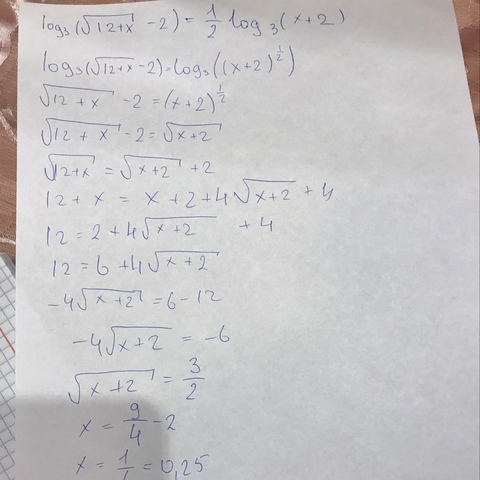 log₃(√(12+x) - 2) = 1/2 log₃(x+2)
log₃(√(12+x) - 2) = log₃((x+2)^(1/2))
√(12+x) - 2 = (x+2)^(1/2)
√(12+x) - 2 = √(x+2)
√(12+x) = √(x+2) + 2
12 + x = x + 2 + 4√(x+2) + 4
12 = 2 + 4√(x+2) + 4
12 = 6 + 4√(x+2)
-4√(x+2) = 6 - 12
-4√(x+2) = -6
√(x+2) = 3/2
x = 9/4 - 2
x = 1/4 = 0,25